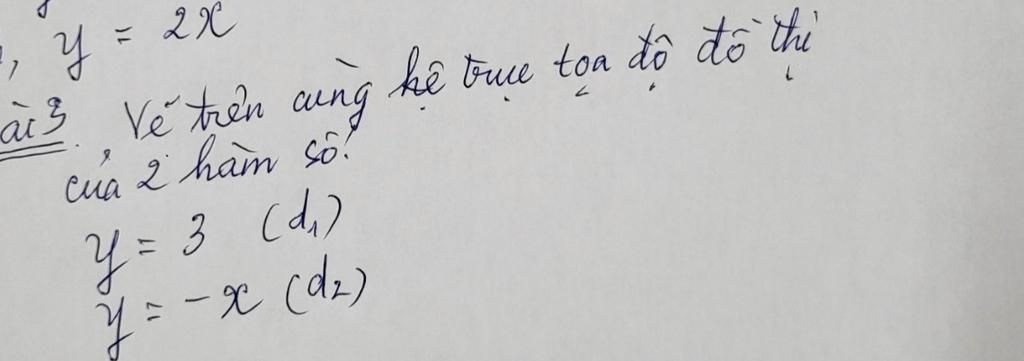 , y = 2x
ài 3. Vẽ trên cùng hệ trục tọa độ đồ thị
của 2 hàm số:
y = 3 (d₁)
y = -x (d₂)